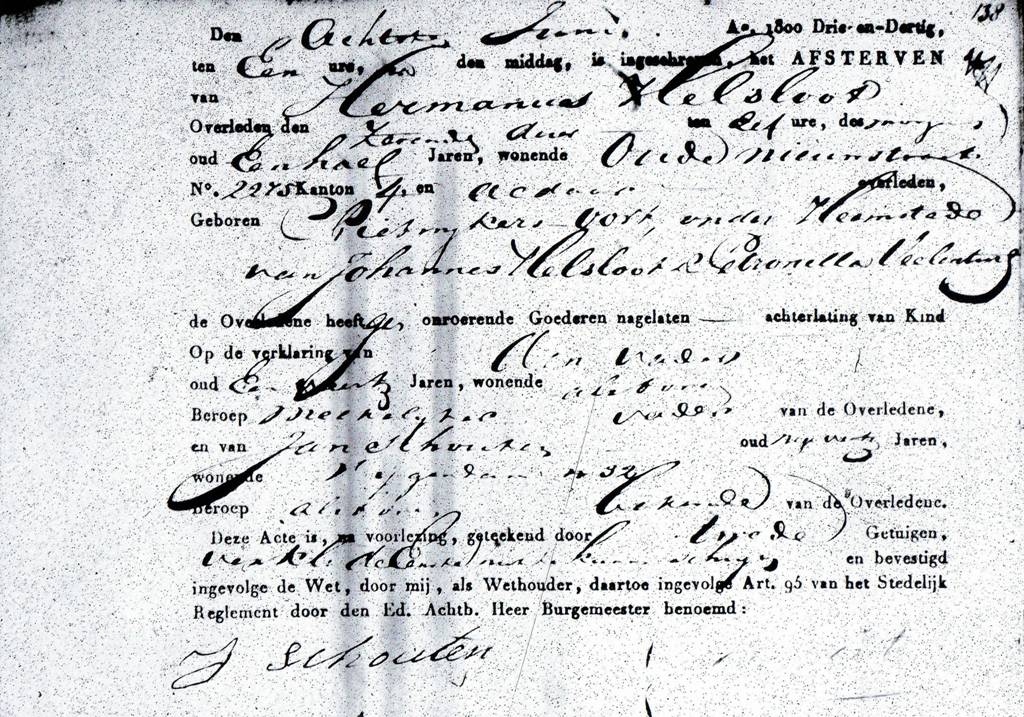 138
Den Achtste Juni. Ao. 1800 Drie-en-Dertig,
ten Een ure, na den middag, is ingeschreven, het AFSTERVEN
van Hermanus Helsloot
Overleden den Zevende dezer ten Elf ure, des morgens
oud Een half Jaren, wonende Oude nieuwstraat
No. 2275 Kanton 4, en aldaar overleden,
Geboren onder Heemstede
van Johannes Helsloot & Petronella
de Overledene heeft gn, onroerende Goederen nagelaten — achterlating van Kind
Op de verklaring van den vader
oud Een veertig Jaren, wonende als boven
Beroep vader van de Overledene,
en van Jan Schouten oud Jaren,
wonende n 32
Beroep als boven bekende van de Overledene.
Deze Acte is, na voorlezing, geteekend door tweede Getuigen,
verkl. de Eerste niet te kunnen schryven en bevestigd
ingevolge de Wet, door mij, als Wethouder, daartoe ingevolge Art. 95 van het Stedelijk
Reglement door den Ed. Achtb. Heer Burgemeester benoemd:
J Schouten